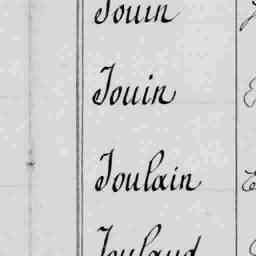 Jouin
Jouin
Joulain
Joulaud